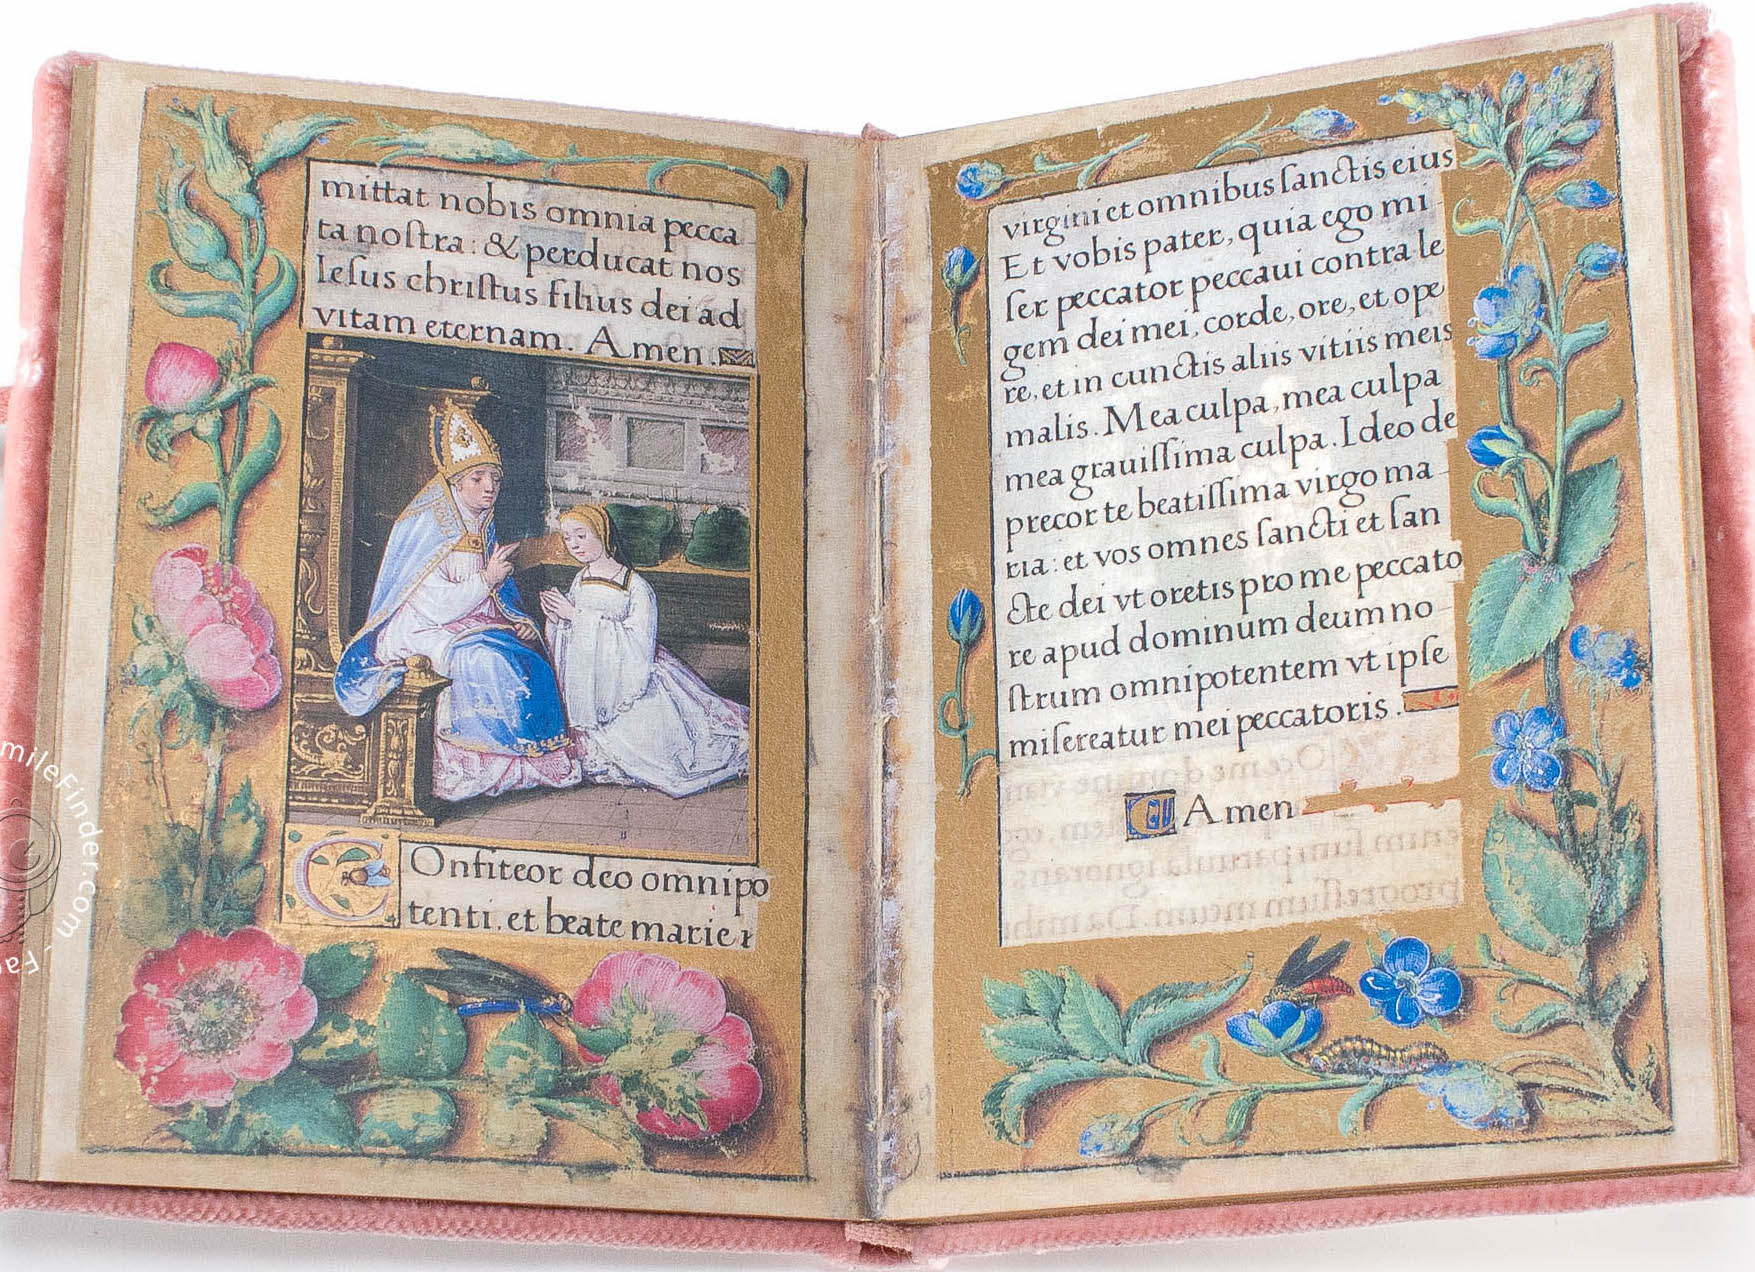 mittat nobis omnia pecca
ta noſtra : & perducat nos
Ieſus chriſtus filius dei ad
vitam eternam. Amen.
COnfiteor deo omnipo
tenti. et beate marie
virgini et omnibus ſanctis eius
Et vobis pater, quia ego mi-
ſer peccator peccaui contra le
gem dei mei, corde, ore, et ope
re, et in cunctis aliis vitiis meis
malis. Mea culpa, mea culpa
mea grauiſſima culpa. Ideo de
precor te beatiſſima virgo ma-
ria: et vos omnes ſancti et ſan
cte dei vt oretis pro me peccato
re apud dominum deum no-
ſtrum omnipotentem vt ipſe
miſereatur mei peccatoris.
Amen
mileFinder.com